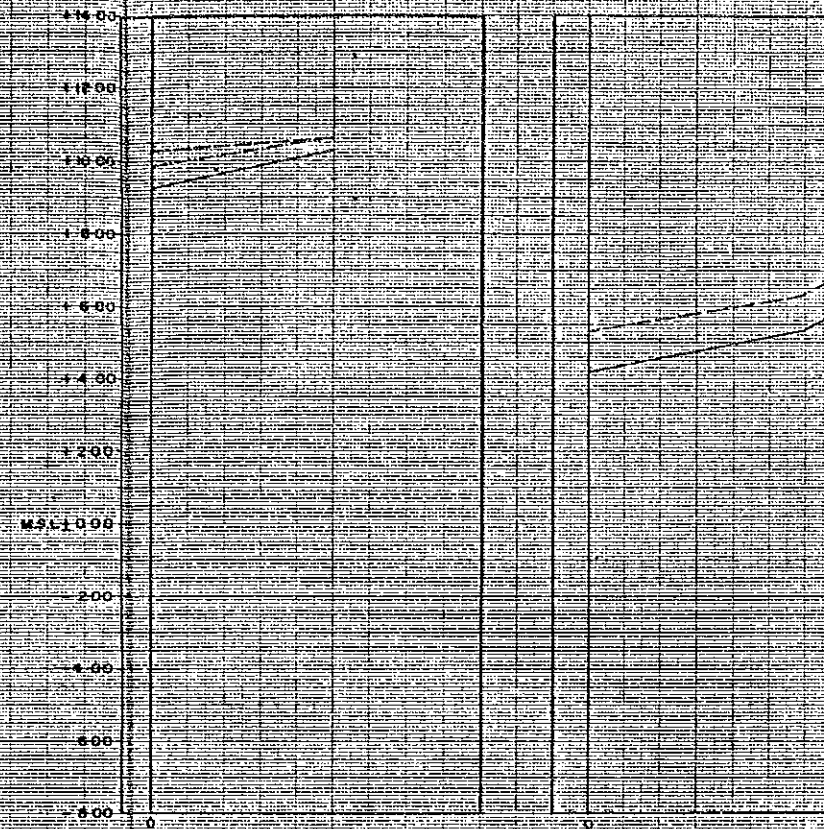 +14.00
+12.00
+10.00
+8.00
+6.00
+4.00
+2.00
M.S.L.± 0.00
-2.00
-4.00
-6.00
-8.00
0 0